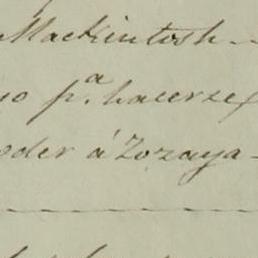 Mackintosh
pª. hacerze
oder á Zozaya